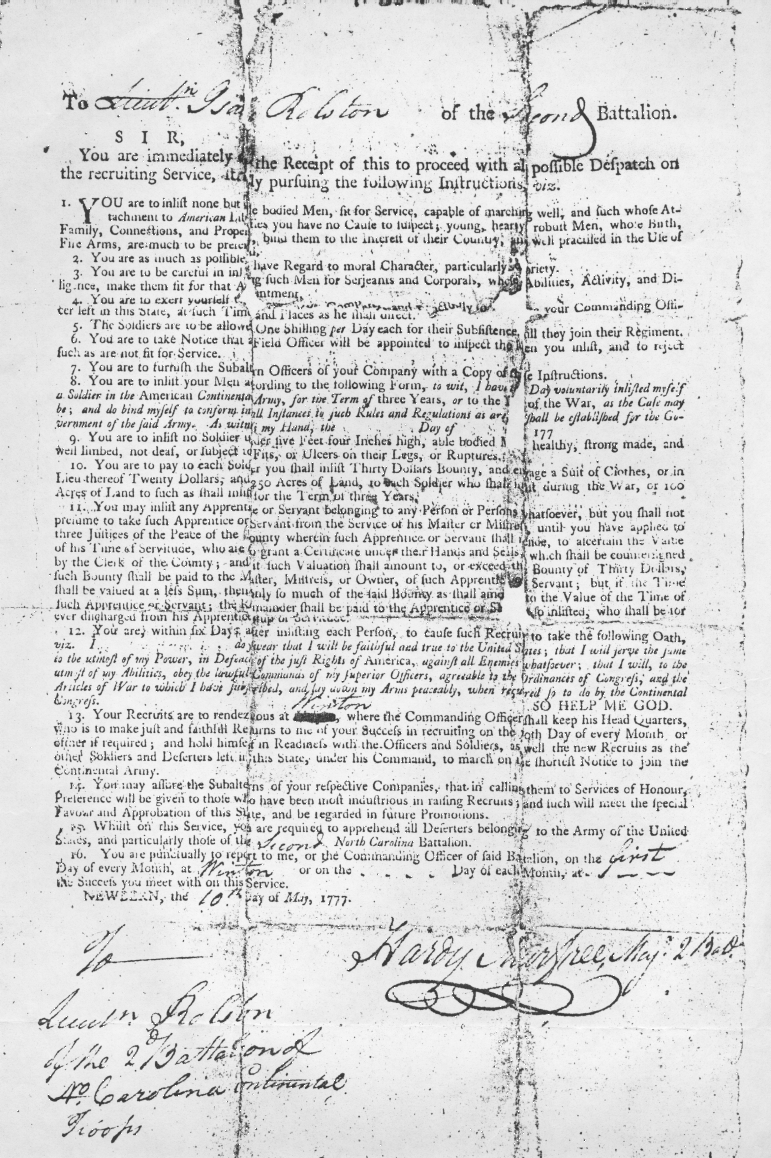 To Lieutn Isa Rolston of the Second Battalion.
S I R,
You are immediately the Receipt of this to proceed with all possible Despatch on
the recruiting Service, ly pursuing the following Instructions, viz.
1. YOU are to inlist none but bodied Men, fit for Service, capable of marching well, and such whose At-
tachment to American you have no Cause to suspect; young, hearty robust Men, whose Birth,
Family, Connections, and Proper bind them to the Interest of their Country, and well practised in the Use of
Fire Arms, are much to be
2. You are as much as possible have Regard to moral Character, particularly
3. You are to be careful in such Men for Serjeants and Corporals, whose Abilities, Activity, and Di-
ligence, make them fit for that
4. You are to exert yourself your Commanding Offi-
cer left in this State, at such Time and Places as he shall direct.
5. The Soldiers are to be allowed One Shilling per Day each for their Subsistence, till they join their Regiment.
6. You are to take Notice that a Field Officer will be appointed to inspect the Men you inlist, and to reject
such as are not fit for Service.
7. You are to furnish the Subaltern Officers of your Company with a Copy of these Instructions.
8. You are to inlist your Men according to the following Form, to wit, I have Day voluntarily inlisted myself
a Soldier in the American Continental Army, for the Term of three Years, or to the of the War, as the Case may
be; and do bind myself to conform in all Instances to such Rules and Regulations as are shall be established for the Go-
vernment of the said Army. As witness my Hand, the Day of 177
9. You are to inlist no Soldier under five Feet four Inches high, able bodied healthy, strong made, and
well limbed, not deaf, or subject to Fits, or Ulcers on their Legs, or Ruptures.
10. You are to pay to each Soldier you shall inlist Thirty Dollars Bounty, and engage a Suit of Clothes, or in
Lieu thereof Twenty Dollars, and 250 Acres of Land, to each Soldier who shall inlist during the War, or 100
Acres of Land to such as shall inlist for the Term of three Years.
11. You may inlist any Apprentice or Servant belonging to any Person or Persons whatsoever, but you shall not
presume to take such Apprentice or Servant from the Service of his Master or Mistress until you have applied to
three Justices of the Peace of the County wherein such Apprentice or Servant shall to ascertain the Value
of his Time of Servitude, who are to grant a Certificate under their Hands and Seals which shall be countersigned
by the Clerk of the County; and if such Valuation shall amount to, or exceed the Bounty of Thirty Dollars,
such Bounty shall be paid to the Master, Mistress, or Owner, of such Apprentice Servant; but if the Time
shall be valued at a less Sum, then only so much of the said Bounty as shall amount to the Value of the Time of
such Apprentice or Servant; the Remainder shall be paid to the Apprentice or so inlisted, who shall be for
ever discharged from his Apprenticeship or Servitude.
12. You are, within six Days after inlisting each Person, to cause such Recruit to take the following Oath,
viz. I do swear that I will be faithful and true to the United States; that I will serve the same
to the utmost of my Power, in Defence of the just Rights of America, against all Enemies whatsoever; that I will, to the
utmost of my Abilities, obey the lawful Commands of my superior Officers, agreeable to the Ordinances of Congress, and the
Articles of War to which I have subscribed, and lay down my Arms peaceably, when required so to do by the Continental
Congress. SO HELP ME GOD.
Winton
13. Your Recruits are to rendezvous at , where the Commanding Officer shall keep his Head Quarters,
who is to make just and faithful Returns to me of your Success in recruiting on the Day of every Month, or
oftner if required; and hold himself in Readiness with the Officers and Soldiers, as well the new Recruits as the
other Soldiers and Deserters left in this State, under his Command, to march on the shortest Notice to join the
Continental Army.
You may assure the Subalterns of your respective Companies, that in calling them to Services of Honour,
Preference will be given to those who have been most industrious in raising Recruits; and such will meet the special
Favour and Approbation of this State, and be regarded in future Promotions.
Whilst on this Service, you are required to apprehend all Deserters belonging to the Army of the United
States, and particularly those of the Second North Carolina Battalion.
16. You are punctually to report to me, or the Commanding Officer of said Battalion, on the first
Day of every Month, at Winton or on the Day of each Month, at
the Success you meet with on this Service.
NEWBERN, the 10th Day of May, 1777.
Hardy Murfree, Maj. 2 Batt.
To
Lieutn Rolston
of the 2d Battalion of
No. Carolina Continental
Troops